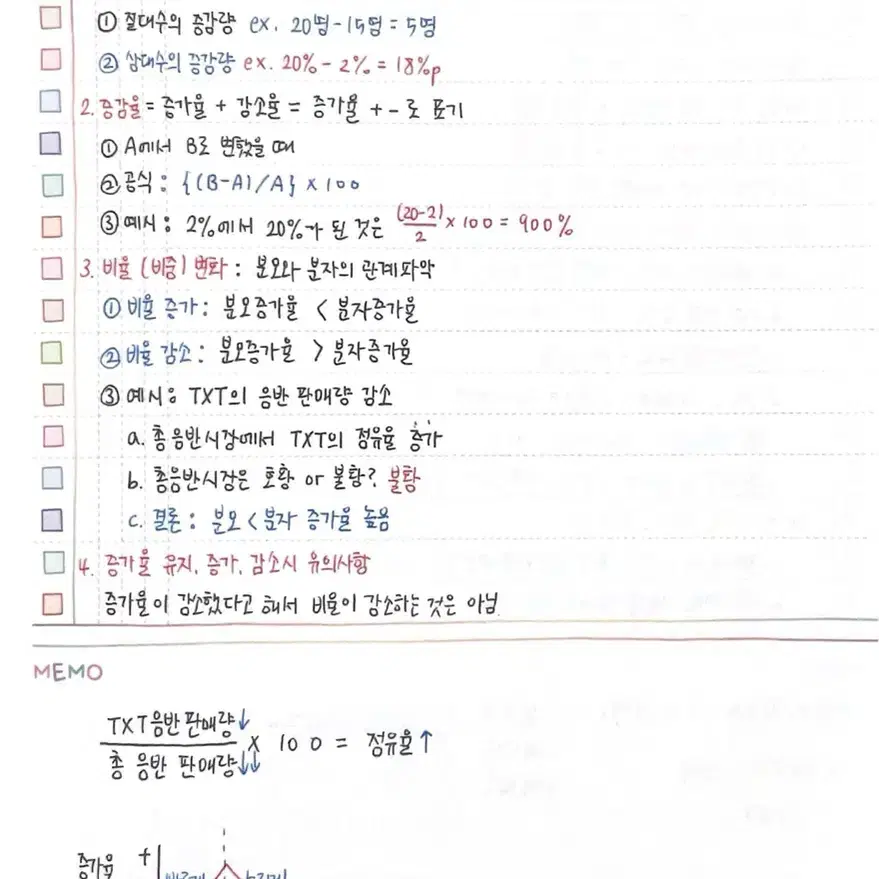 ① 절대수의 증감량 ex. 20명-15명 = 5명
② 상대수의 증감량 ex. 20%-2% = 18%p
2. 증감율 = 증가율 + 감소율 = 증가율 + - 로 표기
① A에서 B로 변했을 때
② 공식 : {(B-A)/A} × 100
③ 예시 : 2%에서 20%가 된 것은 (20-2)/2 × 100 = 900%
3. 비율 (비중) 변화 : 분모와 분자의 관계파악
① 비율 증가 : 분모증가율 < 분자증가율
② 비율 감소 : 분모증가율 > 분자증가율
③ 예시 : TXT의 음반 판매량 감소
a. 총 음반시장에서 TXT의 점유율 증가
b. 총음반시장은 호황 or 불황? 불황
c. 결론 : 분모 < 분자 증가율 높음
4. 증가율 유지, 증가, 감소시 유의사항
증가율이 감소했다고 해서 비율이 감소하는 것은 아님
MEMO
TXT음반 판매량↓
총 음반 판매량↓↓ × 100 = 점유율↑
증가율 +